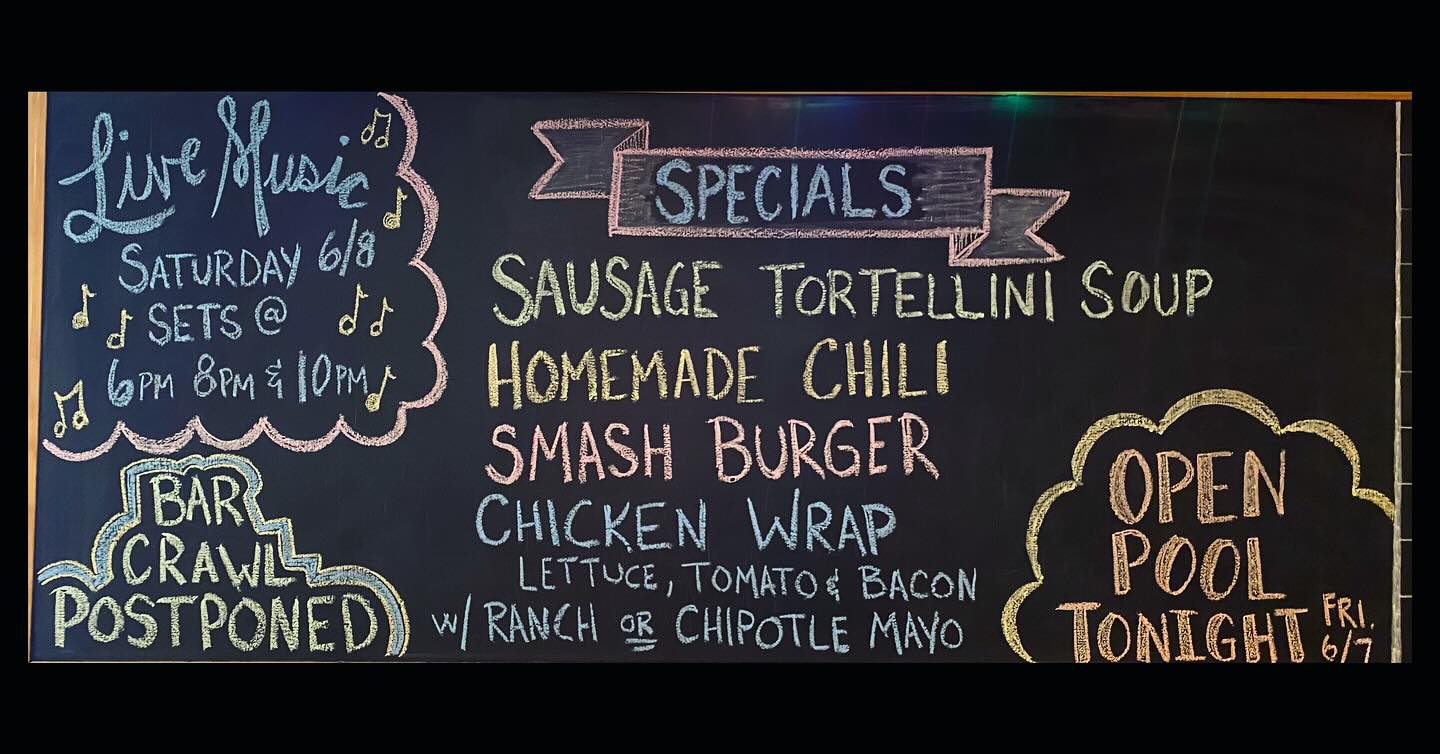 Live Music
SATURDAY 6/8
SETS @
6PM 8PM & 10PM
BAR
CRAWL
POSTPONED
SPECIALS
SAUSAGE TORTELLINI SOUP
HOMEMADE CHILI
SMASH BURGER
CHICKEN WRAP
LETTUCE, TOMATO & BACON
W/ RANCH OR CHIPOTLE MAYO
OPEN
POOL
TONIGHT FRI. 6/7